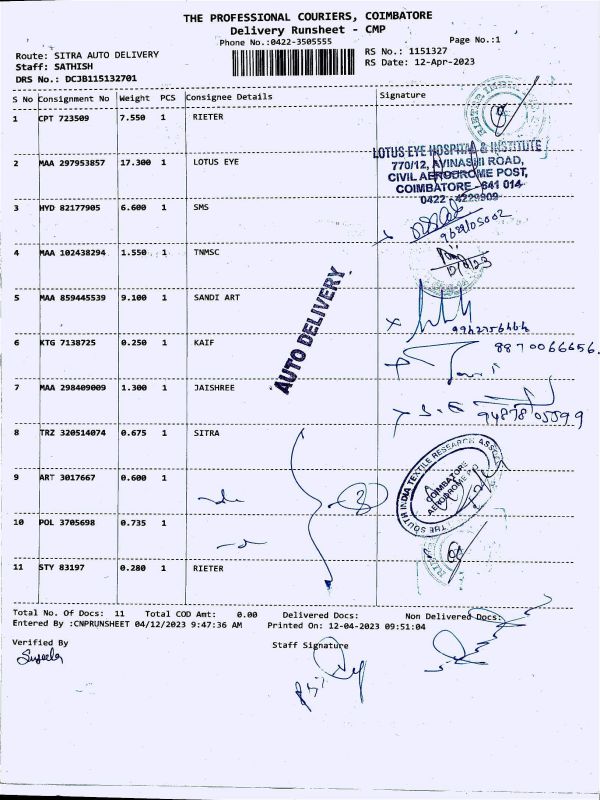 THE PROFESSIONAL COURIERS, COIMBATORE
Delivery Runsheet - CMP
Phone No.:0422-3505555 Page No.:1
Route: SITRA AUTO DELIVERY RS No.: 1151327
Staff: SATHISH RS Date: 12-Apr-2023
DRS No.: DCJB115132701
S No Consignment No Weight PCS Consignee Details Signature
1 CPT 723509 7.550 1 RIETER
LOTUS EYE HOSPITAL & INSTITUTE
2 MAA 297953857 17.300 1 LOTUS EYE 770/12, AVINASHI ROAD,
CIVIL AERODROME POST,
COIMBATORE - 641 014
0422 - 4229909
3 HYD 82177905 6.600 1 SMS
4 MAA 102438294 1.550 1 TNMSC
5 MAA 859445539 9.100 1 SANDI ART
AUTO DELIVERY
6 KTG 7138725 0.250 1 KAIF 8870066656.
7 MAA 298409009 1.300 1 JAISHREE
8 TRZ 320514074 0.675 1 SITRA
THE SOUTH INDIA TEXTILE RESEARCH
COIMBATORE
AERODROME P.O
9 ART 3017667 0.600 1
10 POL 3705698 0.735 1
11 STY 83197 0.280 1 RIETER
Total No. Of Docs: 11 Total COD Amt: 0.00 Delivered Docs: Non Delivered Docs:
Entered By :CNPRUNSHEET 04/12/2023 9:47:36 AM Printed On: 12-04-2023 09:51:04
Verified By Staff Signature